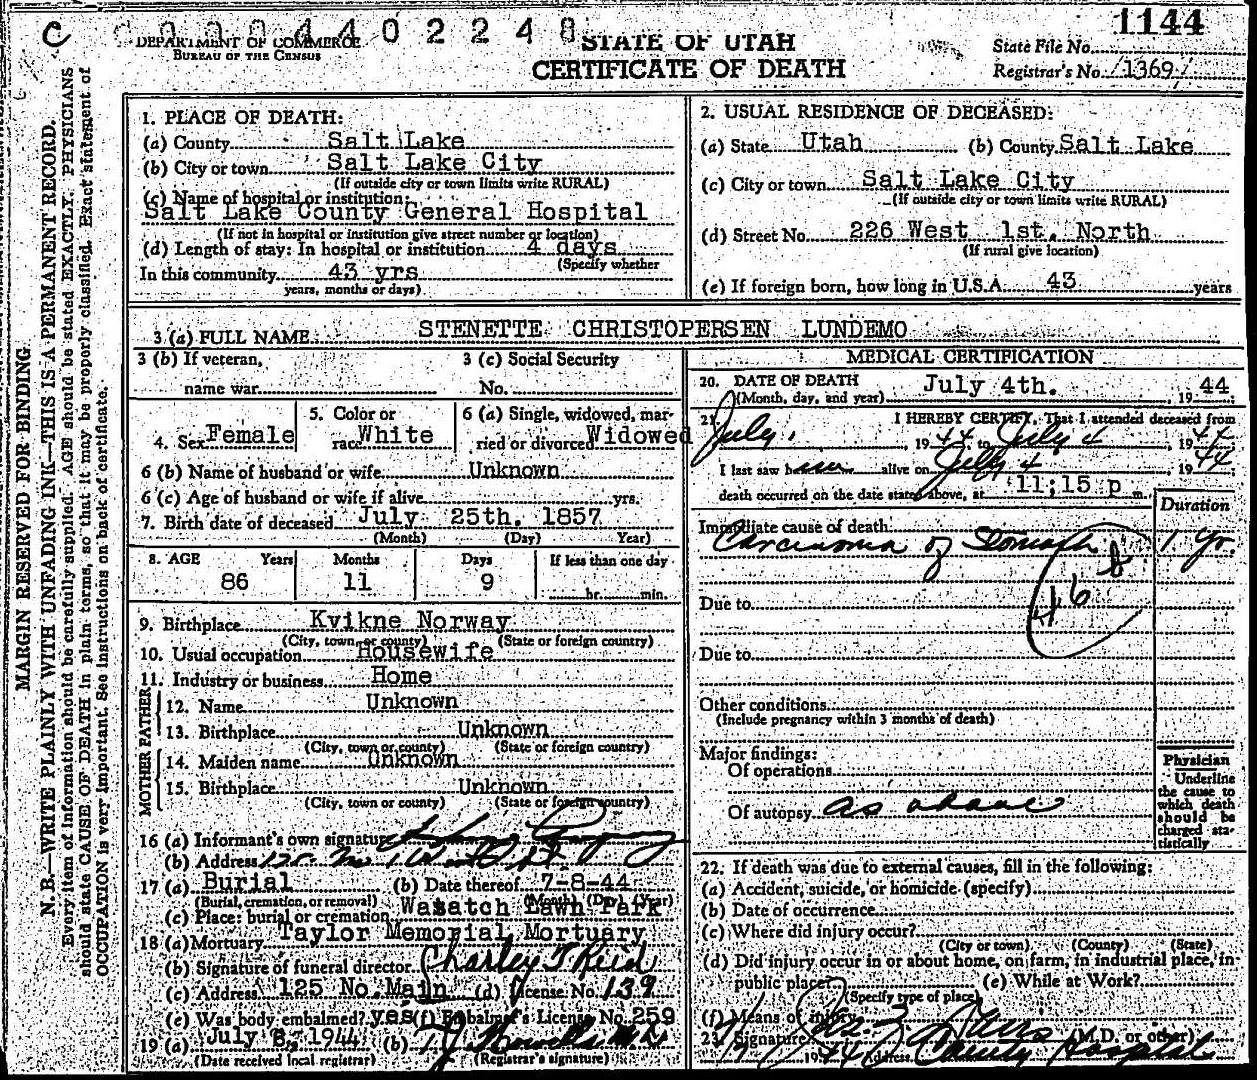 C
000440 2248
1144
DEPARTMENT OF COMMERCE
BUREAU OF THE CENSUS
STATE OF UTAH
CERTIFICATE OF DEATH
State File No.
Registrar's No. 1369
MARGIN RESERVED FOR BINDING
N. B.—WRITE PLAINLY WITH UNFADING INK—THIS IS A PERMANENT RECORD.
Every item of information should be carefully supplied. AGE should be stated EXACTLY. PHYSICIANS
should state CAUSE OF DEATH in plain terms, so that it may be properly classified. Exact statement of
OCCUPATION is very important. See instructions on back of certificate.
1. PLACE OF DEATH:
(a) County Salt Lake
(b) City or town Salt Lake City
(If outside city or town limits write RURAL)
(c) Name of hospital or institution:
Salt Lake County General Hospital
(If not in hospital or institution give street number or location)
(d) Length of stay: In hospital or institution 4 days
(Specify whether
In this community 43 yrs
years, months or days)
2. USUAL RESIDENCE OF DECEASED:
(a) State Utah (b) County Salt Lake
(c) City or town Salt Lake City
(If outside city or town limits write RURAL)
(d) Street No. 226 West 1st. North
(If rural give location)
(e) If foreign born, how long in U.S.A. 43 years
3 (a) FULL NAME STENETTE CHRISTOPERSEN LUNDEMO
3 (b) If veteran, 3 (c) Social Security
name war No.
4. Sex Female 5. Color or race White 6 (a) Single, widowed, married or divorced Widowed
6 (b) Name of husband or wife Unknown
6 (c) Age of husband or wife if alive yrs.
7. Birth date of deceased July 25th. 1857
(Month) (Day) Year)
8. AGE Years Months Days If less than one day
86 11 9 hr. min.
9. Birthplace Kvikne Norway
(City, town or county) (State or foreign country)
10. Usual occupation Housewife
11. Industry or business Home
FATHER
12. Name Unknown
13. Birthplace Unknown
(City, town or county) (State or foreign country)
MOTHER
14. Maiden name Unknown
15. Birthplace Unknown
(City, town or county) (State or foreign country)
16 (a) Informant's own signature
(b) Address 125 No
17 (a) Burial (b) Date thereof 7-8-44
(Burial, cremation, or removal) (Month) (Day) (Year)
(c) Place: burial or cremation Wasatch Lawn Park
18 (a) Mortuary Taylor Memorial Mortuary
(b) Signature of funeral director Charley T Reid
(c) Address 125 No. Main (d) License No. 139
(e) Was body embalmed? yes (f) Embalmer's License No. 259
19 (a) July 8, 1944 (b) T J Howells M.D.
(Date received local registrar) (Registrar's signature)
MEDICAL CERTIFICATION
20. DATE OF DEATH July 4th. , 19 44
(Month, day, and year)
21. I HEREBY CERTIFY, That I attended deceased from
July 1 , 19 44 to July 4 , 19 44
I last saw h er alive on July 4 , 19 44
death occurred on the date stated above, at 11;15 p m.
Duration
Immediate cause of death
Carcinoma of Stomach 1 yr.
46 b
Due to
Due to
Other conditions
(Include pregnancy within 3 months of death)
Major findings:
Of operations
Of autopsy as above
Physician
Underline
the cause to
which death
should be
charged sta-
tistically
22. If death was due to external causes, fill in the following:
(a) Accident, suicide, or homicide (specify)
(b) Date of occurrence
(c) Where did injury occur?
(City or town) (County) (State)
(d) Did injury occur in or about home, on farm, in industrial place, in
public place? (e) While at Work?
(Specify type of place)
(f) Means of injury
23. Signature (M.D. or other)
7/7 1944 Address County Hospital